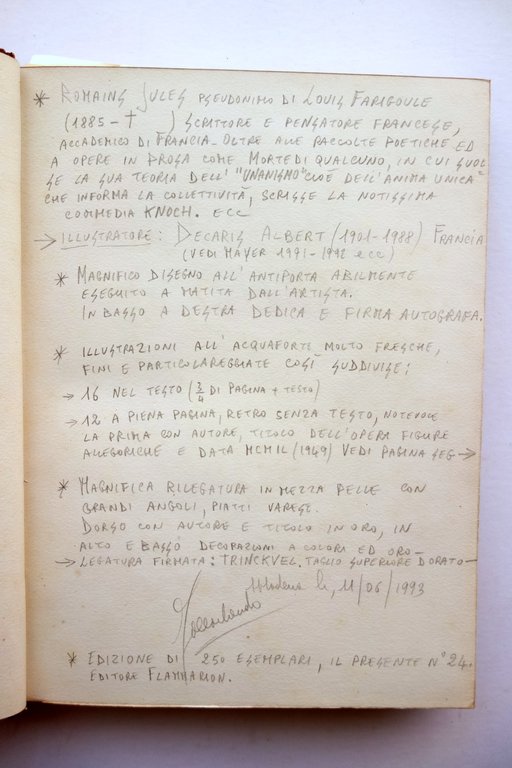 * ROMAINS JULES PSEUDONIMO DI LOUIS FARIGOULE
(1885 - † ) SCRITTORE E PENSATORE FRANCESE,
ACCADEMICO DI FRANCIA - OLTRE ALLE RACCOLTE POETICHE ED
A OPERE IN PROSA COME MORTE DI QUALCUNO, IN CUI SVOL
SE LA SUA TEORIA DELL' "UNANISMO" CIOÈ DELL'ANIMA UNICA"
CHE INFORMA LA COLLETTIVITÀ, SCRISSE LA NOTISSIMA
COMMEDIA KNOCH. ECC
→ ILLUSTRATORE: DECARIS ALBERT (1901-1988) FRANCIA
(VEDI MAYER 1991-1992 ecc)
* MAGNIFICO DISEGNO ALL'ANTIPORTA ABILMENTE
ESEGUITO A MATITA DALL'ARTISTA.
IN BASSO A DESTRA DEDICA E FIRMA AUTOGRAFA.
* ILLUSTRAZIONI ALL'ACQUAFORTE MOLTO FRESCHE,
FINI E PARTICOLAREGGIATE COSÌ SUDDIVISE:
→ 16 NEL TESTO (3/4 DI PAGINA + TESTO)
→ 12 A PIENA PAGINA, RETRO SENZA TESTO, NOTEVOLE
LA PRIMA CON AUTORE, TITOLO DELL'OPERA FIGURE
ALLEGORICHE E DATA MCMIL (1949) VEDI PAGINA SEG →
* MAGNIFICA RILEGATURA IN MEZZA PELLE CON
GRANDI ANGOLI, PIATTI VARESE.
DORSO CON AUTORE E TITOLO IN ORO, IN
ALTO E BASSO DECORAZIONI A COLORI ED ORO -
→ LEGATURA FIRMATA: TRINCKVEL. TAGLIO SUPERIORE DORATO -
Modena li, 11/06/1993
* EDIZIONE DI 250 ESEMPLARI, IL PRESENTE N° 24.
EDITORE FLAMMARION.